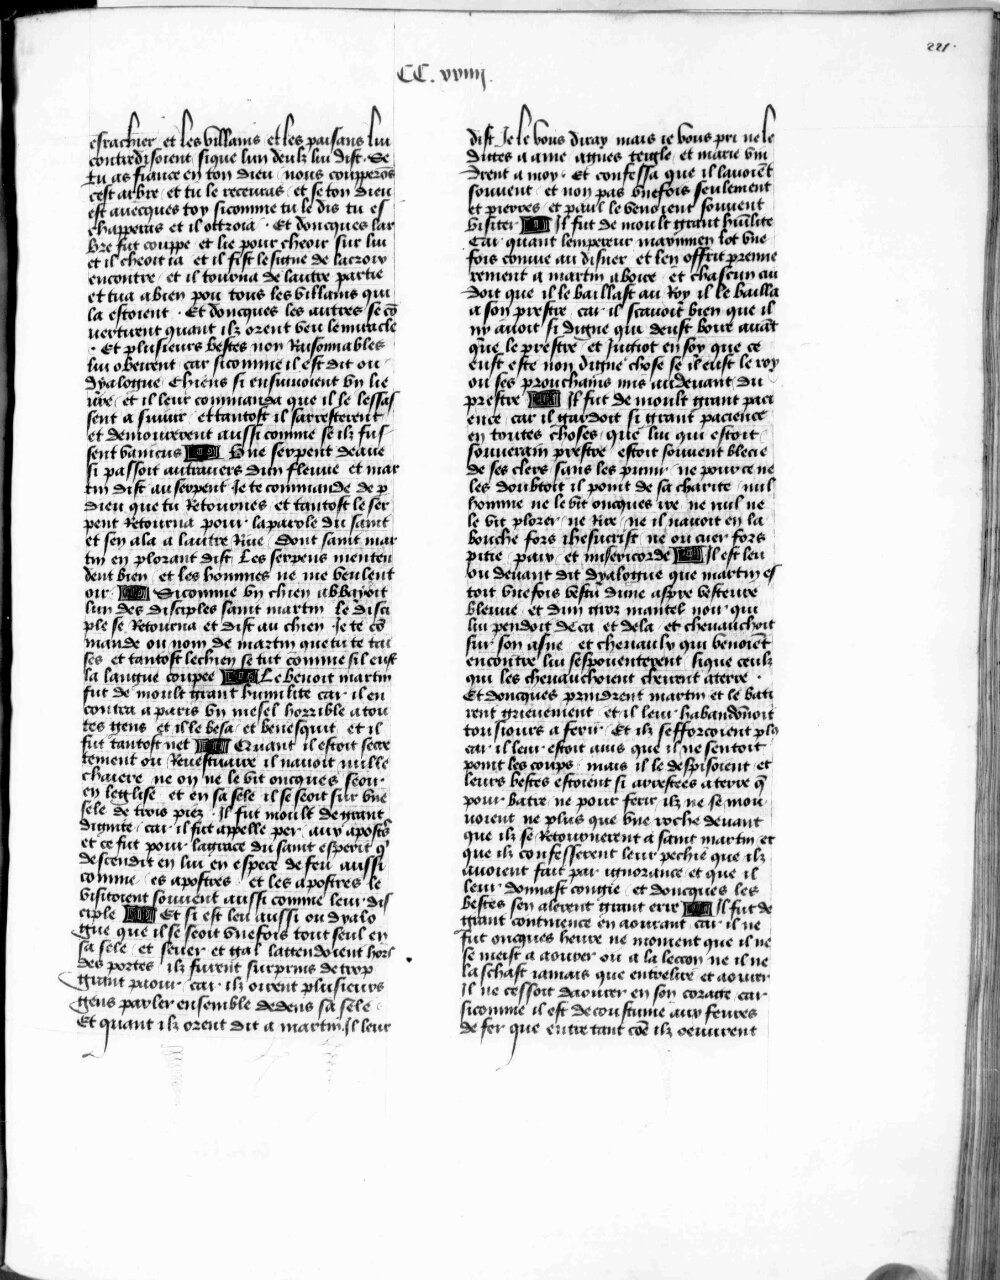 221.
CC. xxiiij.
esrachier et les villains et les paisans lui
contredisoient sique lun deulz lui dist. Se
tu as fiance en ton dieu nous coupperōs
cest arbre et tu le recevras et se ton dieu
est avecques toy sicomme tu le dis tu es
chapperas et il ottroia. Et doncques lar
bre fut couppe et lie pour cheoir sur lui
et il cheoit ia et il fist le signe de la croix
encontre et il tourna de lautre partie
et tua a bien pou tous les villains qui
la estoient. Et doncques les autres se cō
vertirent quant ilz orent veu le miracle
. Et plusieurs bestes non Raisonnables
lui obeirent car sicomme il est dit ou
dyalogue Chiens si ensuivoient vn lie
vre et il leur commanda que il le lessas
sent a suivir et tantost il sarresterent
et demourerent aussi comme se ilz fus
sent vaincus Une serpent deaue
si passoit au travers dun fleuve et mar
tin dist au serpent Je te commande de p
dieu que tu Retournes et tantost le ser
pent Retourna pour la parole du saint
et sen ala a lautre Rive Dont saint mar
tin en plorant dist Les serpens menten
dent bien et les hommes ne me veulent
oir Sicomme vn chien abbayoit
lun des disciples saint martin le disci
ple se Retourna et dist au chien Je te cō
mande ou nom de martin que tu te tai
ses et tantost le chien se tut comme sil eust
la langue coupee Le benoit martin
fut de moult grant humilite car il en
contra a paris vn mesel horrible a tou
tes gens et il le besa et benesquit et il
fut tantost net Quant il estoit secre
tement ou Revestuaire il navoit nulle
chaiere ne on ne le vit oncques seoir
en leglise et en sa sele il se seoit sur vne
sele de trois piez. Il fut moult de grant
dignite car il fut appelle per aux apostꝭ
et ce fut pour la grace du saint esperit q̄
descendit en lui en espece de feu aussi
comme es apostres et les apostres le
visitoient souvent aussi comme leur dis
ciple Et si est leu aussi ou dyalo
gue que il se seoit vnefois tout seul en
sa sele et sever et gal lattendoient hors
des portes ilz furent surprins de trop
grant paour car ilz oirent plusieurs
gens parler ensemble dedens sa sele
Et quant ilz orent dit a martin Il leur
dist Je le vous diray mais ie vous pri ne le
dittes a ame agnes teigle et marie vin
drent a moy. Et confessa que il lavoiēt
souvent et non pas vnefois seulement
et pierres et paul le venoient souvent
visiter Il fut de moult grant hūilite
Car quant lempereur maximien lot vne
fois convie au disner et len offrit premie
rement a martin a boire et chascun cui
doit que il le baillast au Roy il le bailla
a son prestre car il scavoit bien que il
ny avoit si digne qui deust boire avāt
que le prestre et Jucioit en soy que ce
eust este non digne chose se il eust le roy
ou ses prouchains mis au devant du
prestre Il fut de moult grant paci
ence car il gardoit si grant pacience
en toutes choses que lui qui estoit
souverain prestre estoit souvent blecie
de ses clers sans les punir ne pour ce ne
les doubtoit il point de sa charite nul
homme ne le vit oncques ire ne nul ne
le vit plorer ne Rire ne il navoit en la
bouche fors ihesucrist ne ou cuer fors
pitie paix et misericorde Il est leu
ou devant dit dyalogue que martin es
toit vnefois vestu dune aspre vesteure
bleuue et dun gros mantel noir qui
lui pendoit de ca et de la et chevauchoit
sur son asne et chevaulx qui venoiēt
encontre lui sespouenterent sique ceulz
qui les chevauchoient cheirent a terre.
Et doncques prindrent martin et le bati
rent griefvement et il leur habandōnoit
tousiours a ferir Et ilz sefforcoient plꝰ
car il leur estoit avis que il ne sentoit
point les coups mais il le despisoient et
leurs bestes estoient si arrestees a terre q̄
pour batre ne pour ferir ilz ne se mou
voient ne plus que vne roche devant
que ilz se Retournerent a saint martin et
que ilz confesserent leur pechie que ilz
avoient fait par ignorance et que il
leur donnast congie et doncques les
bestes sen alerent grant erre Il fut de
grant continence en aourant car il ne
fut oncques heure ne moment que il ne
se meist a aourer ou a la lecon ne il ne
la schast iamais que entrelire et aourer
Il ne cessoit daourer en son corage car
sicomme il est de coustume aux fevres
de fer que entre tant cōe ilz oeuvrent